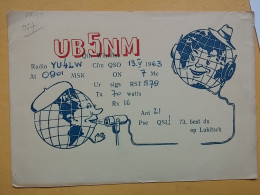 UB5NM
Radio YU4LW Cfm QSO 13.V 1963
At 0901 MSK ON 7 Mc
Ur sigs RST 579
Tx 70 watts
Rx 16
Ant 21
Pse QSL! 73, best dx
op